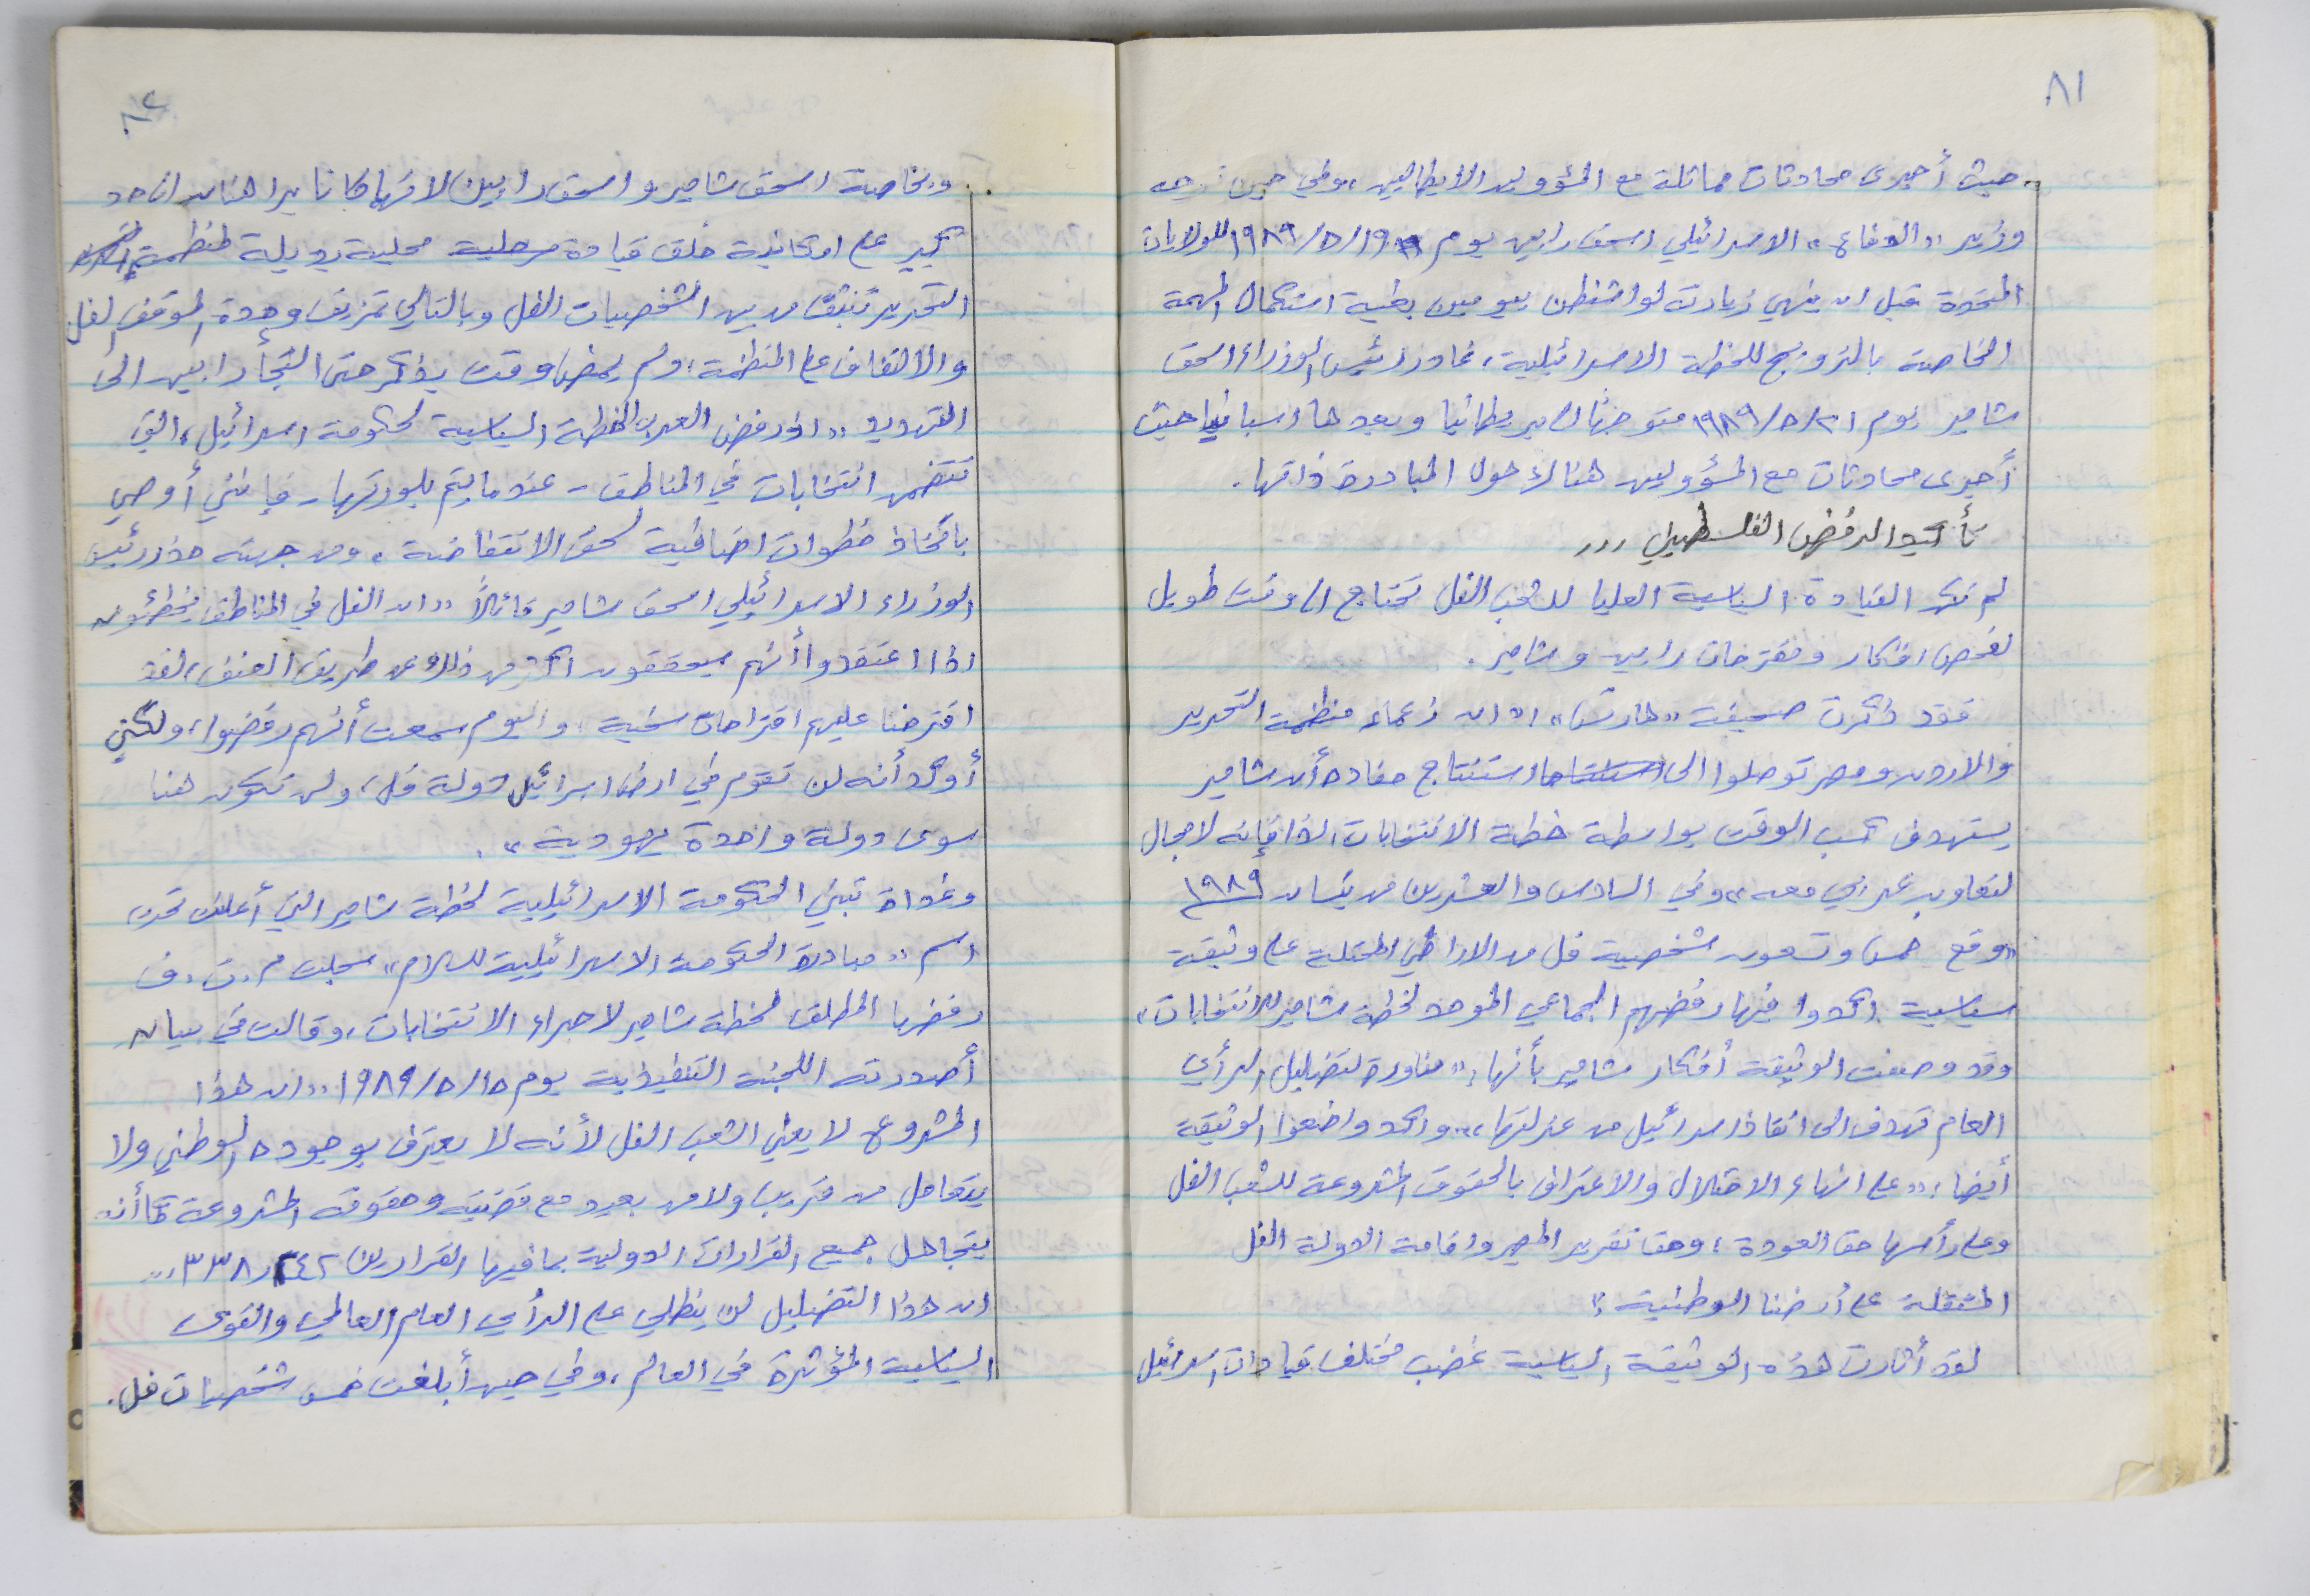 ٨١
حيث أجرى محادثات مماثلة مع المسؤولين الايطاليين، وفي حين توجه
وزير «الدفاع» الاسرائيلي اسحق رابين يوم ١٩/٥/١٩٨٩ للولايات
المتحدة قبل ان ينهي زيارته لواشنطن بيومين بغية استكمال المهمة
الخاصة بالترويج للخطة الاسرائيلية، غادر رئيس الوزراء اسحق
شامير يوم ٢١/٥/١٩٨٩ متوجهًا الى بريطانيا وبعدها اسبانيا حيث
أجرى محادثات مع المسؤولين هناك حول المبادرة ذاتها.
تأكيد الرفض الفلسطيني ...
لم تكن القيادة السياسية العليا للشعب الفل تحتاج الى وقت طويل
لفحص افكار ومقترحات رابين وشامير.
فقد ذكرت صحيفة «هارتس»: «ان زعماء منظمة التحرير
والاردن ومصر توصلوا الى استنتاج مفاده أن شامير
يستهدف كسب الوقت بواسطة خطة الانتخابات، لذا فإنه لا مجال
لتعاون عربي معه» وفي السادس والعشرين من نيسان ١٩٨٩
«وقع خمس وتسعون شخصية فل من الاراضي المحتلة على وثيقة
سياسية اكدوا فيها رفضهم الجماعي الموحد لخطة شامير للانتخابات»
وقد وصفت الوثيقة أفكار شامير بأنها: «مناورة لتضليل الرأي
العام تهدف الى انقاذ اسرائيل من عزلتها»، واكد واضعوا الوثيقة
أيضا: «على انهاء الاحتلال والاعتراف بالحقوق المشروعة للشعب الفل
وعلى رأسها حق العودة، وحق تقرير المصير واقامة الدولة الفل
المستقلة على أرضنا الوطنية»
لقد أثارت هذه الوثيقة السياسية غضب مختلف قيادات اسرائيل
٨٢
.. وبخاصة اسحق شامير واسحق رابين لانهما كانا يراهنان الى حد
كبير على امكانية خلق قيادة مرحلية محلية بديلة لمنظمة
التحرير تنبثق من بين الشخصيات الفل وبالتالي تمزيق وحدة الموقف الفل
والالتفاف على المنظمة، ولم يمض وقت يذكر حتى التجأ رابين الى
التهديد «اذا رفض العرب الخطة السياسية لحكومة اسرائيل، التي
تتضمن انتخابات في المناطق - عندما يتم بلورتها - فإنني أوصي
باتخاذ خطوات اضافية لسحق الانتفاضة، ومن جهته حذر رئيس
الوزراء الاسرائيلي اسحق شامير قائلاً «ان الفل في المناطق يخطئون
اذا اعتقدوا أنهم سيحققون اكثر من ذلك عن طريق العنف، لقد
اقترحنا عليهم اقتراحات سخية، واليوم سمعت أنهم رفضوا، ولكني
أؤكد أنه لن تقوم في ارض اسرائيل دولة فل، ولن تكون هنا
سوى دولة واحدة يهودية».
وغداة تبني الحكومة الاسرائيلية لخطة شامير التي أعلنت تحت
اسم «مبادرة الحكومة الاسرائيلية للسلام» سجلت م.ت.ف
رفضها المطلق لخطة شامير لاجراء الانتخابات، وقالت في بيان
أصدرته اللجنة التنفيذية يوم ١٥/٥/١٩٨٩ «ان هذا
المشروع لا يعني الشعب الفل لأنه لا يعترف بوجوده الوطني ولا
يتعامل من قريب ولا من بعيد مع قضيته وحقوقه المشروعة كما أنه
يتجاهل جميع القرارات الدولية بما فيها القرارين ٢٤٢ و ٣٣٨...
ان هذا التضليل لن ينطلي على الرأي العام العالمي والقوى
السياسية المؤثرة في العالم، وفي حين أبلغت خمس شخصيات فل.